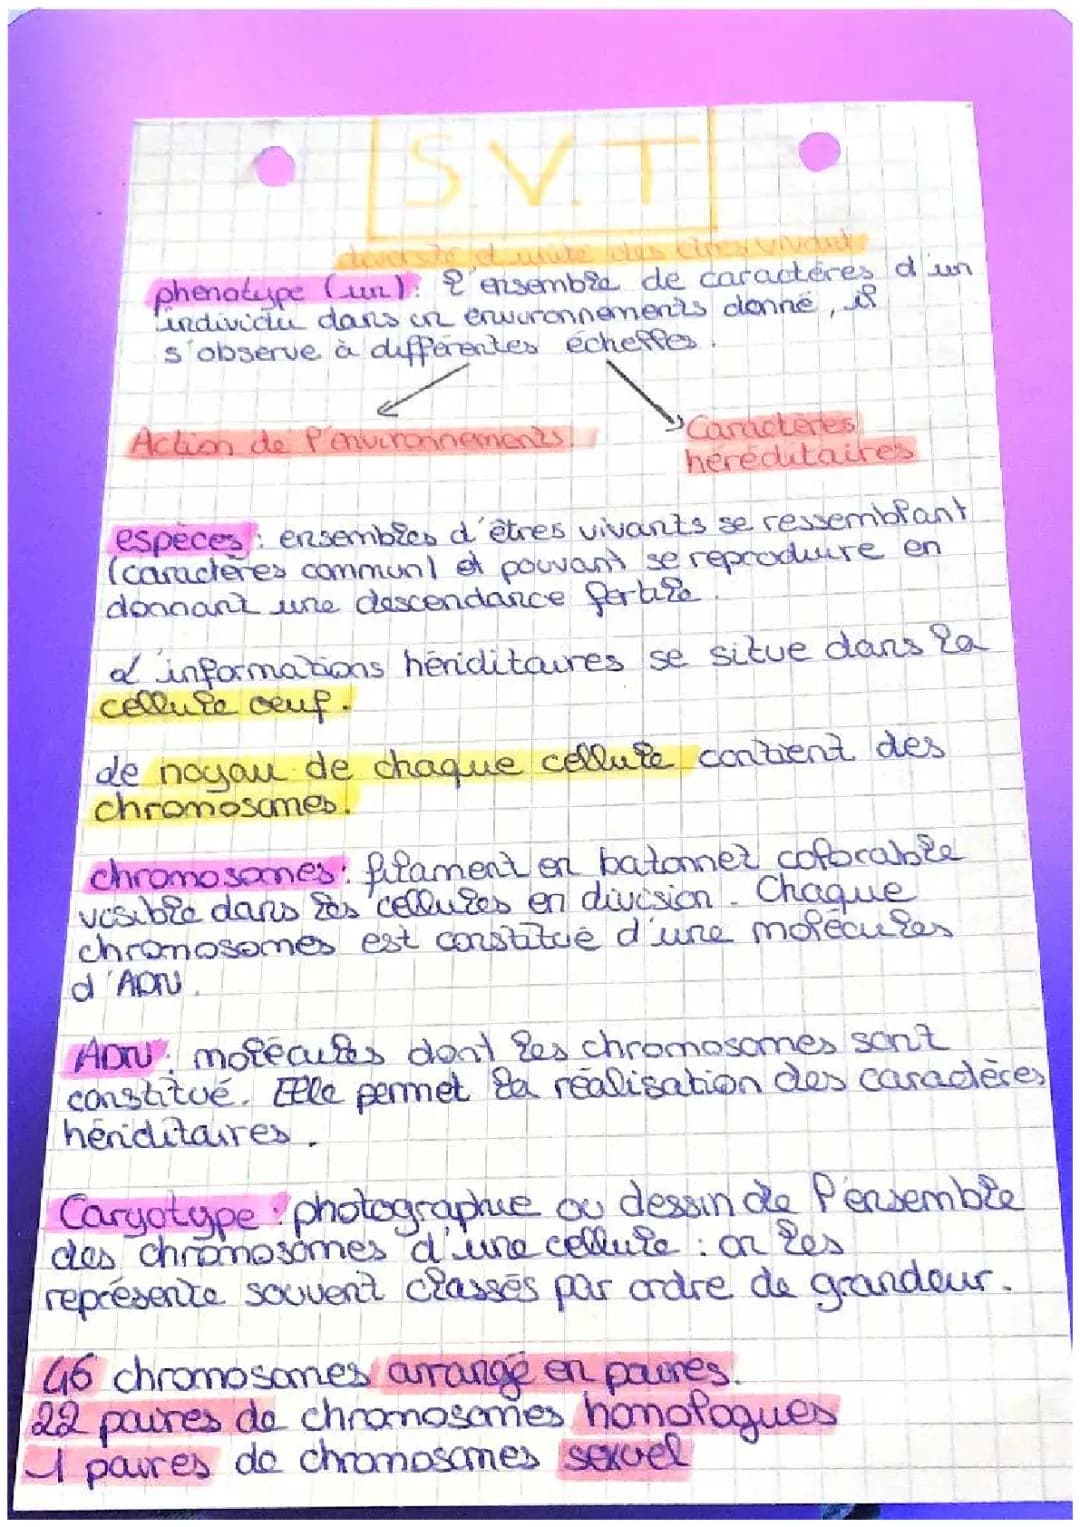 S.V.T
diversité et unité des êtres vivant
phenotype (un): l'ensemble de caractères d'un
individu dans un environnements donné, il
s'observe à différentes échelles.
Action de l'environnements.
Caractères
héréditaires
espèces: ensembles d'êtres vivants se ressemblant
(caractères commun) et pouvant se reproduire en
donnant une descendance fertile.
L'informations hériditaires se situe dans la
cellule œuf.
Le noyau de chaque cellule contient des
chromosomes.
chromosomes: filament en batonnet colorable
visible dans les cellules en division. Chaque
chromosomes est constitué d'une molécules
d'ADN.
ADN: molécules dont les chromosomes sont
constitué. Elle permet la réalisation des caractères
hériditaires.
Caryotype: photographie ou dessin de l'ensemble
des chromosomes d'une cellule: on les
représente souvent classés par ordre de grandeur.
46 chromosomes arrangé en paires.
22 paires de chromosomes homologues
1 paires de chromosomes sexuel